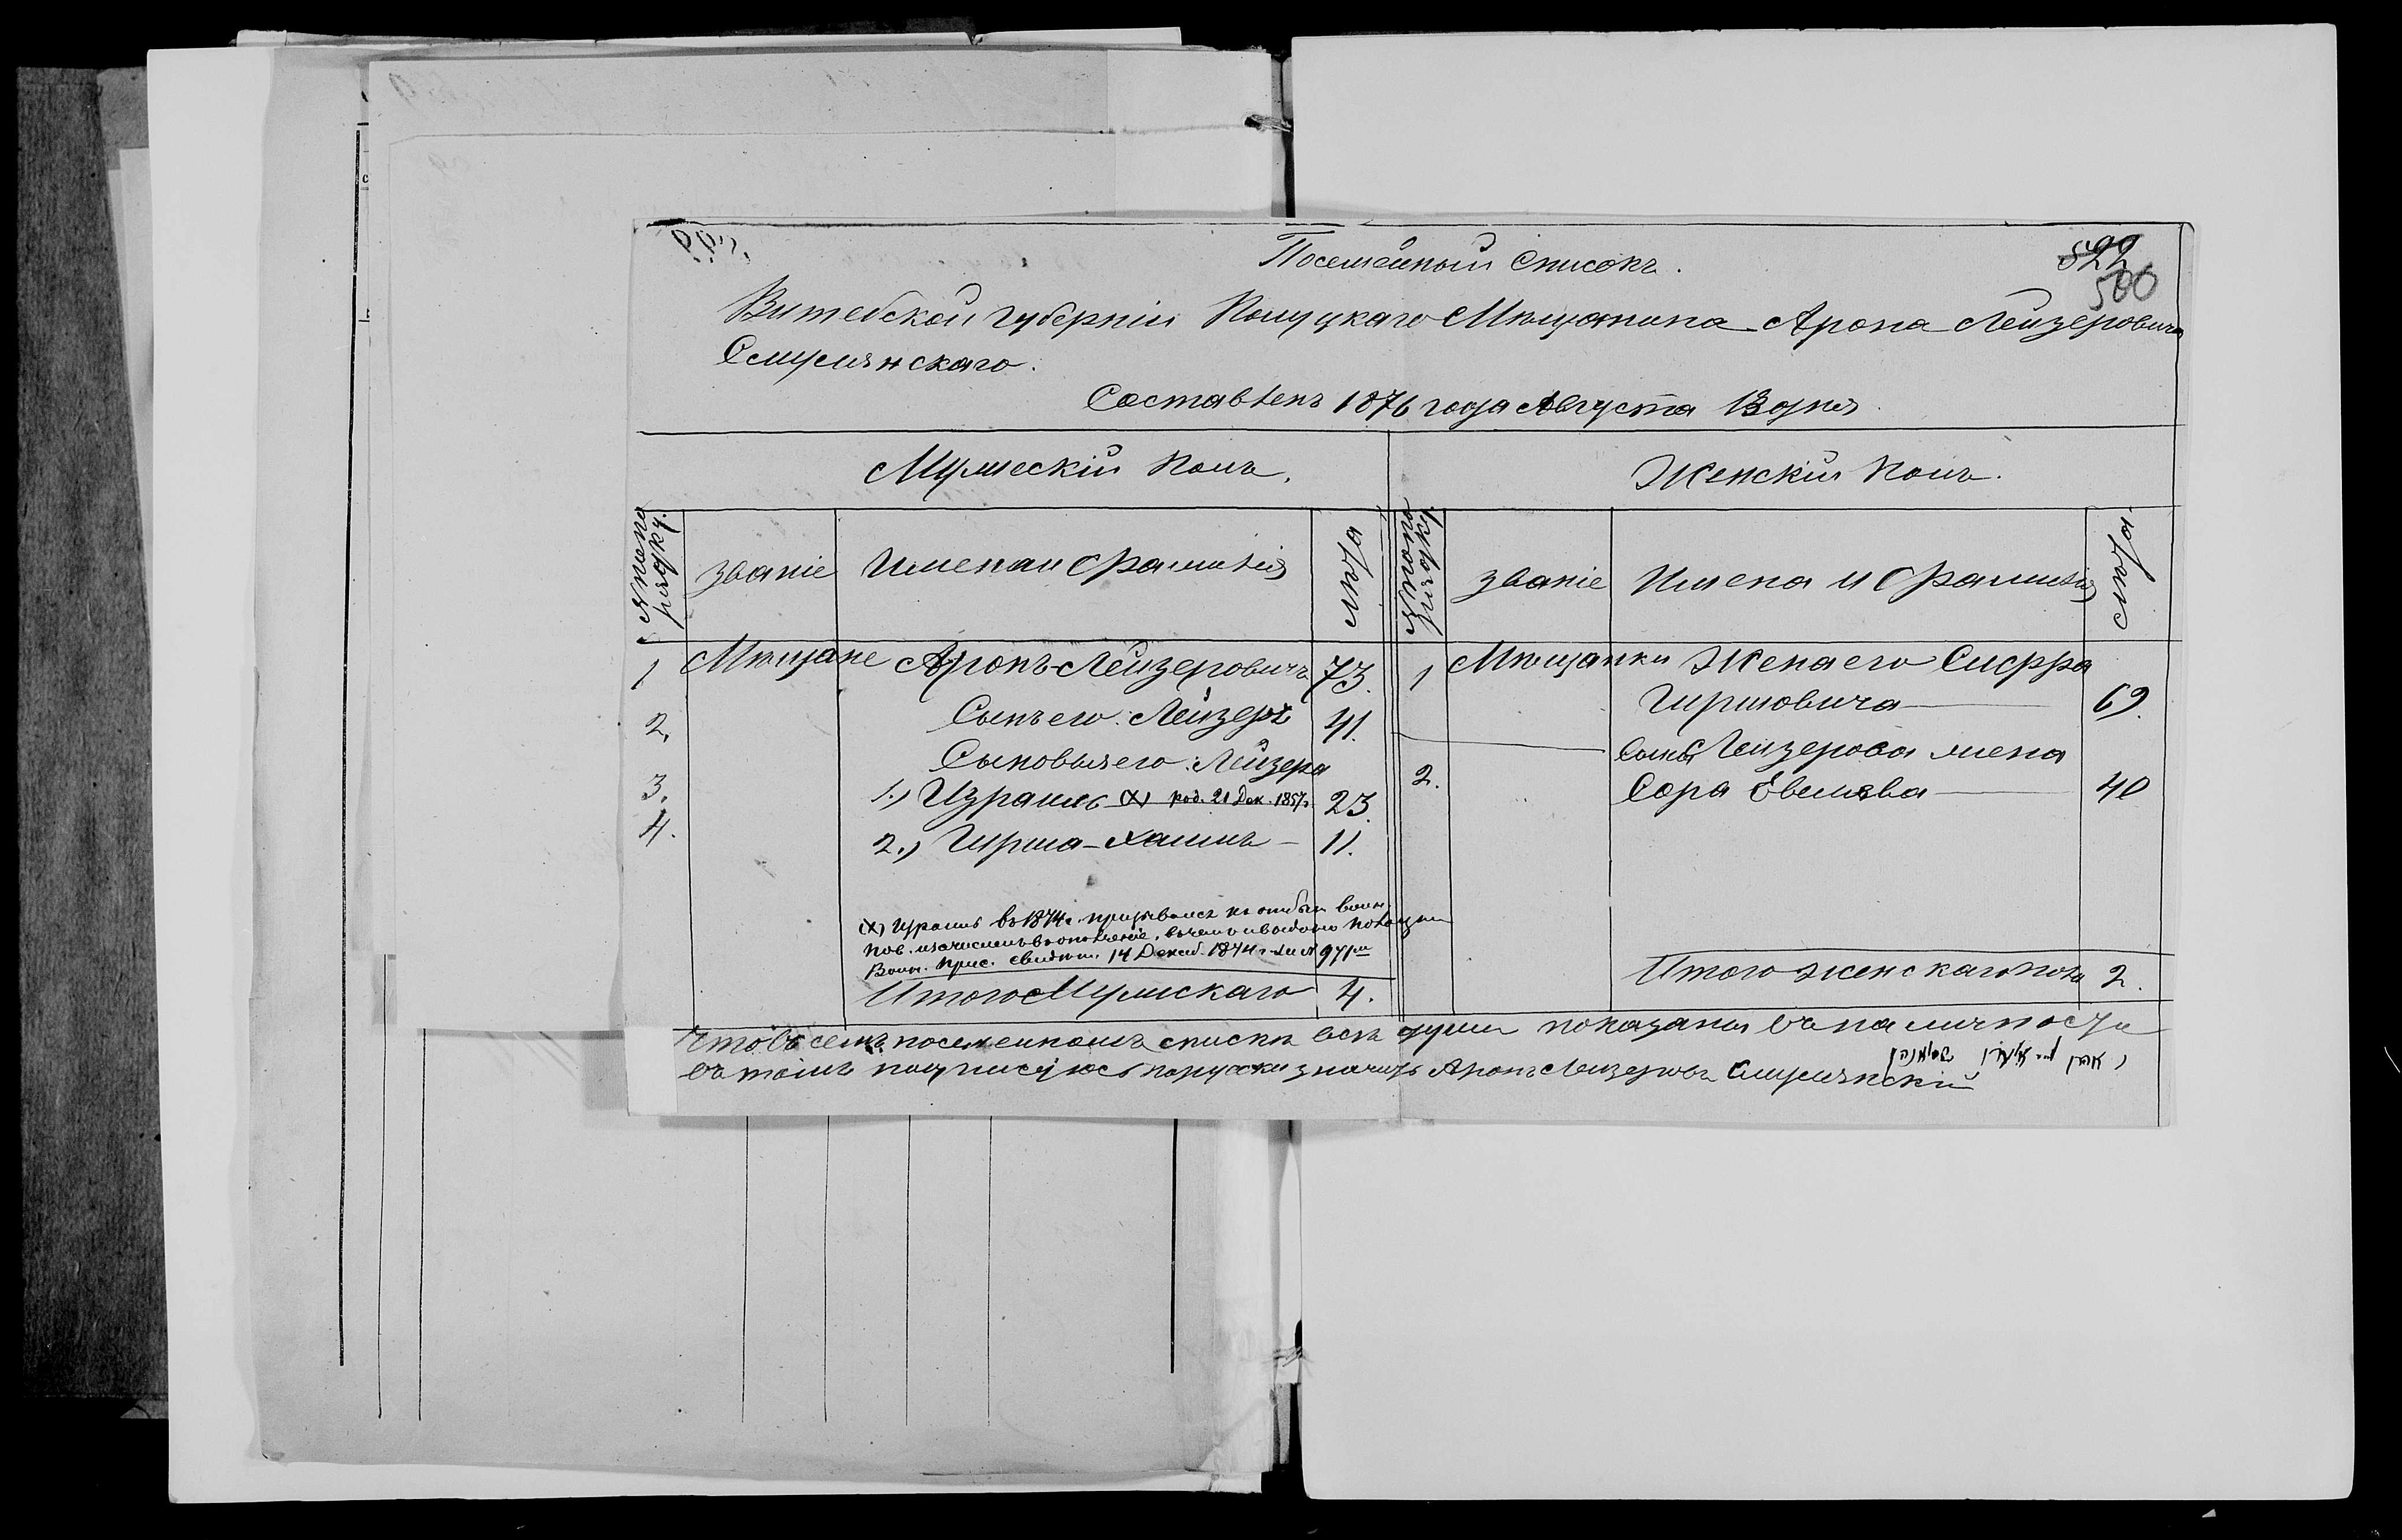 Посемейный Списокъ.
522
500
Витебской губерніи Полуцкаго Мѣщанина Арона Лейзеровича
Смулянскаго.
Составленъ 1876 года Августа 13 дня
Мужескій Полъ.
Женскій Полъ.
№ по порядку.
званіе
Имена и Фамилія
Лѣта
№ по порядку
званіе
Имена и Фамилія
Лѣта.
1 Мѣщане Аронъ Лейзеровичъ 73.
2. Сынъ его: Лейзеръ 41.
Сыновья его: Лейзера
3. 1.) Израиль (X) род. 21 Дек. 1857 г. 23.
4. 2.) Гирша-Хаимъ – 11.
(X) Израиль въ 1874 г. призывался къ отбыт. воин.
пов. и зачисленъ въ ополченіе, въ чемъ и выдано Полоцким
Воин. Прис. свидѣт. 14 Декаб. 1874 г. за № 971
Итого Мужскаго 4.
1 Мѣщанки Жена его Сифра
Гиршовича 69.
сына Лейзерова жена
2. Сора Евелева 40
Итого женскаго пола 2.
Что въ семъ посемейномъ спискѣ всѣ души показаны въ наличности
въ томъ подписуюсь по русски значитъ Аронъ Лейзеровъ Смулянскій